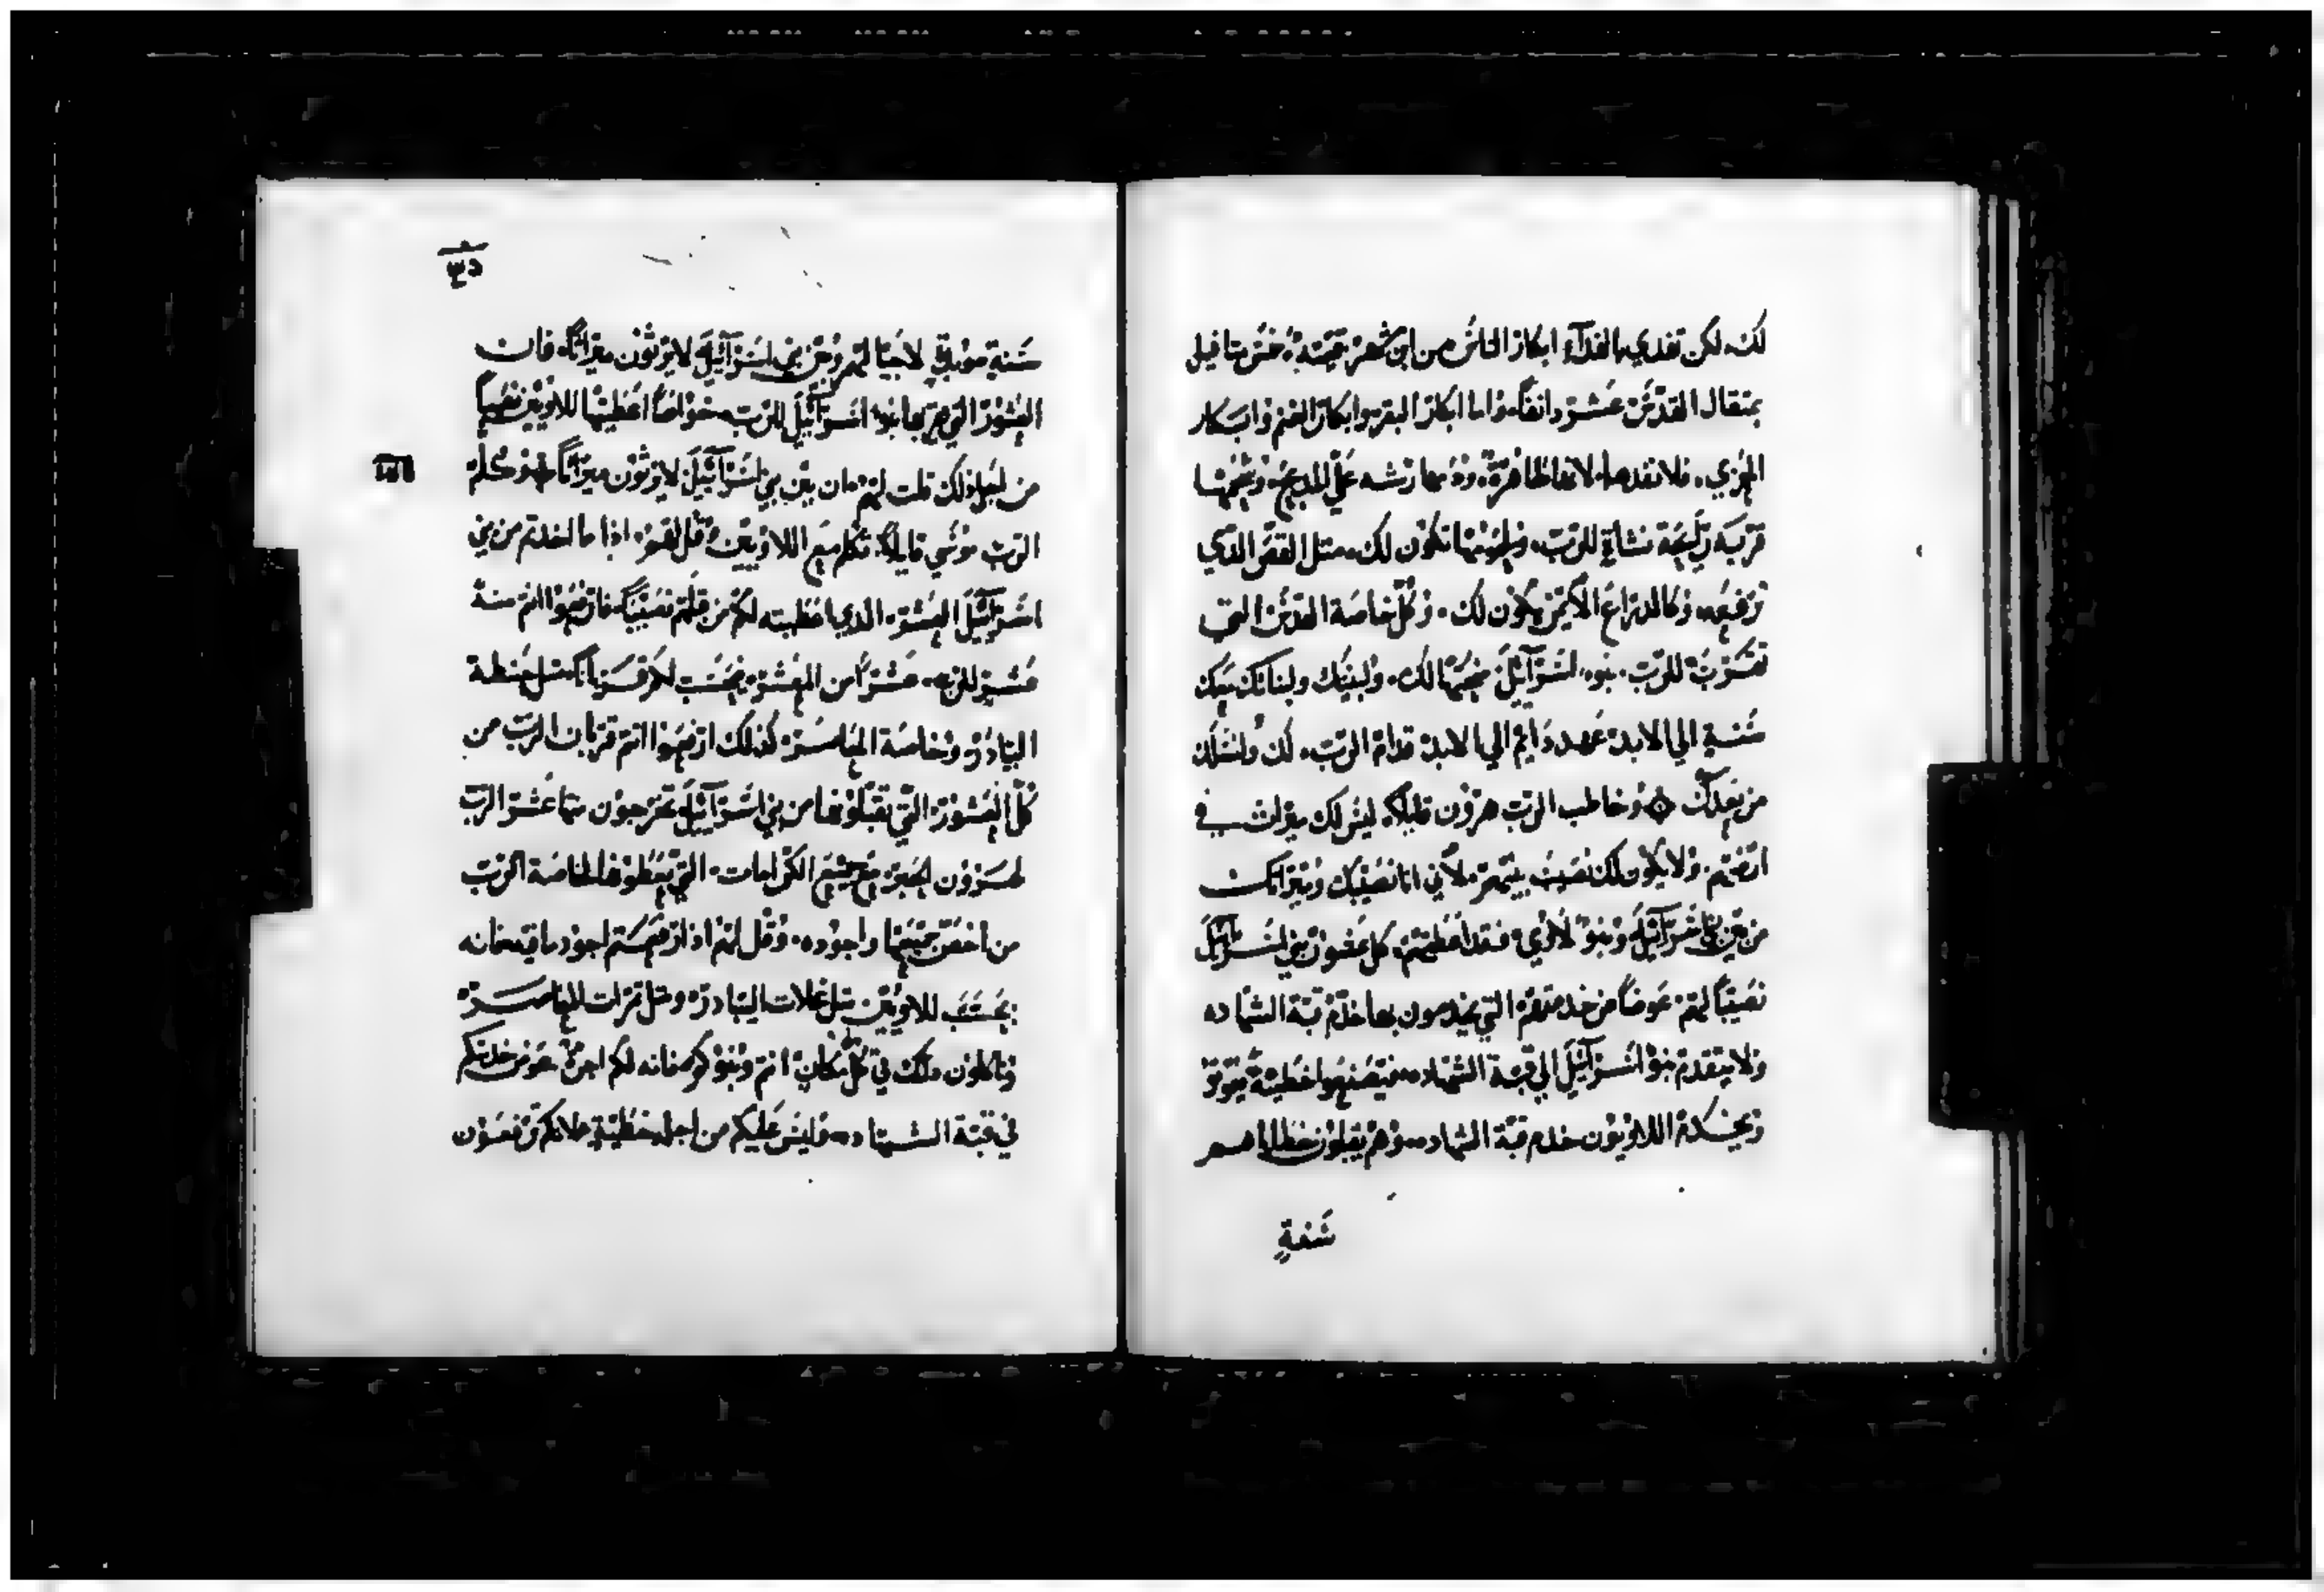 لك. لكن تفدي بالفدآء ابكار الناس من ابن شهر قيمته خمس متاقيل
بمتقال القدس عشرة دانقاً. واما ابكار البقر وابكار الغنم وابكار
المعزي. فلا تفدها لانها طاهرة. ودمها ترشه علي المدبح. وشحمها
قربه رايحة للرب. ولحومها تكون لك. متل القص الدي
ترفعه. وكالدراع الاكيمن يكون لك. وكل خاصة القدس التي
للرب. بنوا اسرآئيل لك. ولبنيك ولبناتك معك
سنة الي الابد. عهد دايم الي الابد قدام الرب. لك ولنسلك
من بعدك وخاطب الرب هرون قايلاً. ليس لك ميرات في
ارضهم. ولا يكون لك نصيب بينهم. لأني انا نصيبك وميراتك
من بين بني اسرآئيل وبنو لاوي. فقد اعطيتهم كل عشور بني اسرآئيل
نصيباً لهم عوضاً من خدمتهم التي يخدمون بها خدم قبة الشهاده
ولا يتقدم بنو اسرآئيل الي قبة الشهاده. خطية
ويخدم اللاويون خدم قبة الشهاده. وهم يقبلون خطاياهم
سنة
٣٥
سنة موبدة لاجيالهم وبين بني اسرآئيل لا يرثون ميراثاً. فان
العشور التي بنوا اسرآئيل للرب خواصاً اعطيتها للاويين نصيباً
من اجل دلك قلت لهم ان بين بني اسرآئيل لا يرثون ميراثاً وكلم
الرب موسي قايلاً. تكلم مع اللاويين وقل لهم. ادا ما اخدتم من بني
اسرآئيل العشر. الدي اعطيته لكم من قبلهم نصيباً. فارفعوا انتم منه
للرب. عشراً من العشر. يحسب لكم قرباناً كمتل حنطة
البيادر وخاصة المعاصر. كدلك ارفعوا انتم قربان الرب من
كل العشور. التي تقبلوها من بني اسرآئيل تخرجون منها عشر الرب
لهرون الحبر. مع جميع الكرامات. التي تعطوها لخاصة الرب
من اخص جميعها واجوده. وقل لهم ادا رفعتم اجود ما فيه فانه
يحسب للاويين متل غلات البيادر. ومتل تمرات المعاصر
وتاكلون دلك في كل مكان انتم وبنوكم. فانه لكم اجرة عوض خدمتكم
في قبة الشهاده. وليس عليكم من اجله خطية. ترفعون